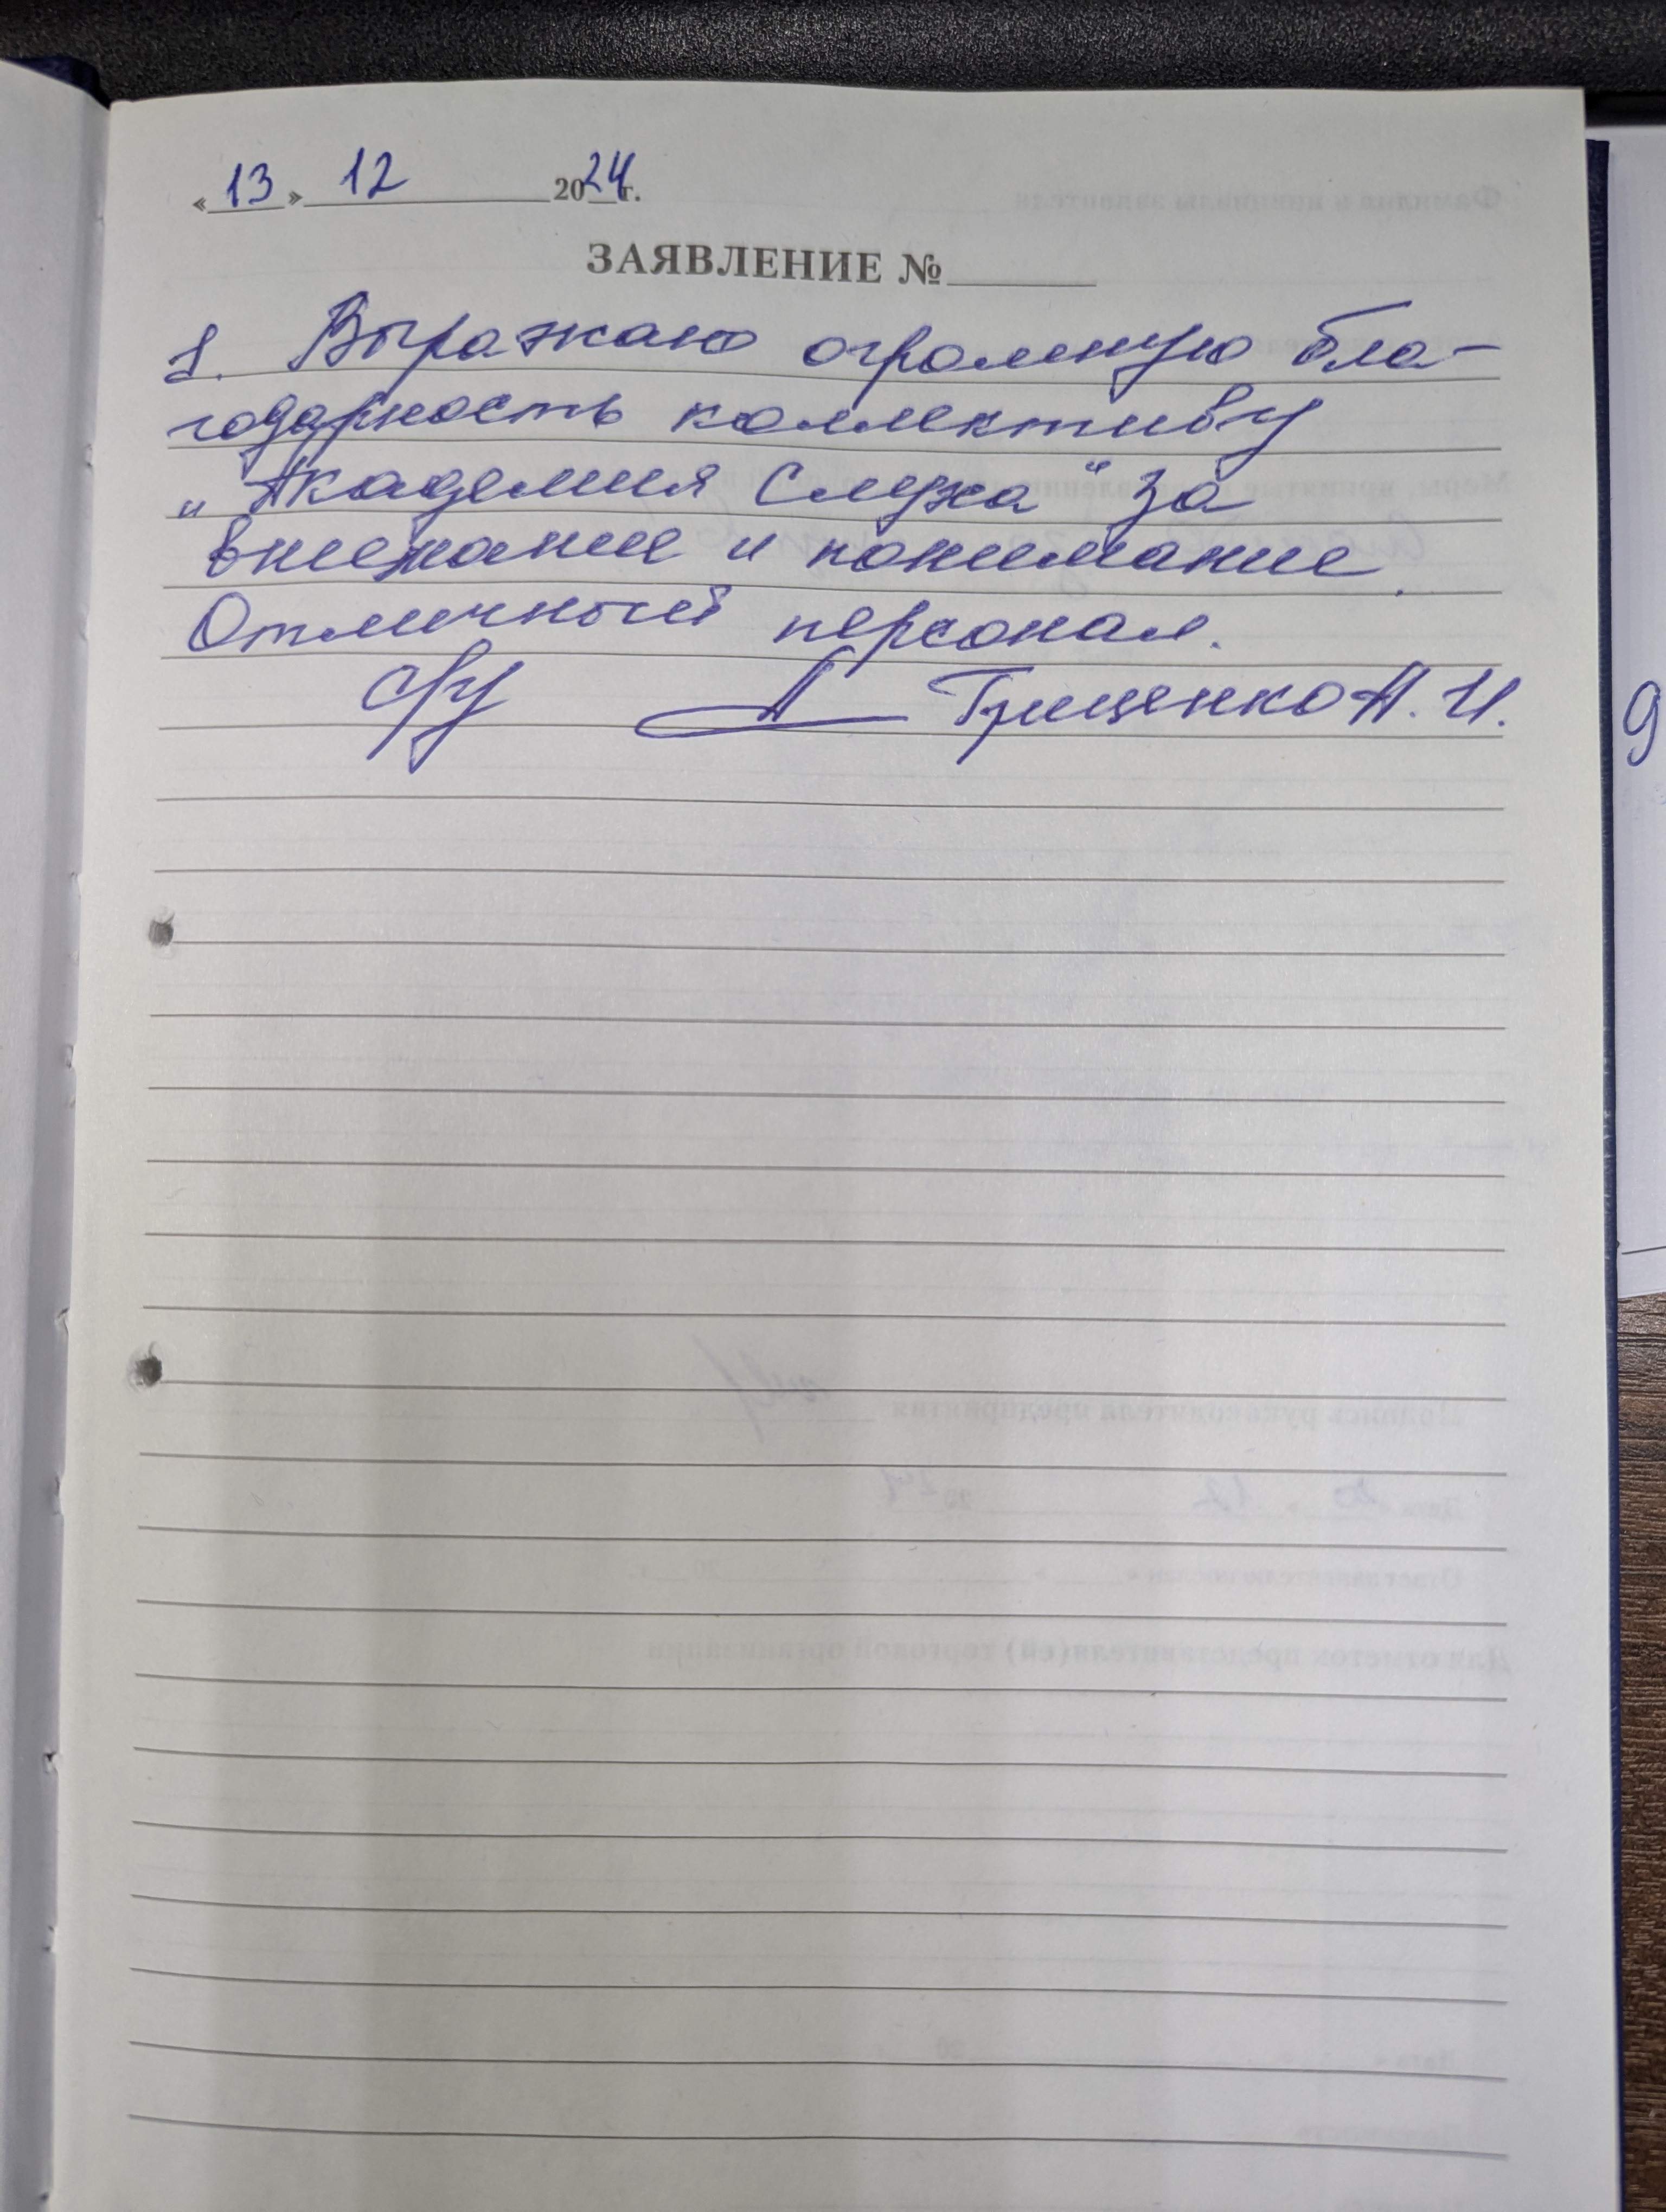 «13» 12 2024г.
ЗАЯВЛЕНИЕ №
1. Выражаю огромную бла-
годарность коллективу
„Академия Слуха“ за
внимание и понимание.
Отличный персонал.
с/у Грищенко А. И.
9